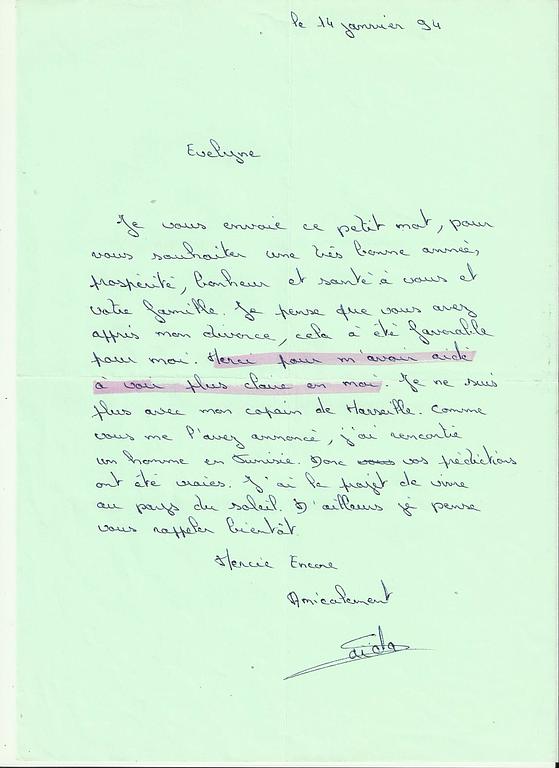 le 14 janvier 94
Evelyne
Je vous envoie ce petit mot, pour
vous souhaiter une très bonne année,
prospérité, bonheur et santé à vous et
votre famille. Je pense que vous avez
appris mon divorce, cela à été favorable
pour moi. Merci pour m'avoir aidé
à voir plus claire en moi. Je ne suis
plus avec mon copain de Marseille. Comme
vous me l'avez annoncé, j'ai rencontré
un homme en Tunisie. Donc vos prédictions
ont été vraies. J'ai le projet de vivre
au pays du soleil. D'ailleurs je pense
vous rappeler bientôt.
Mercie Encore
Amicalement
Saida